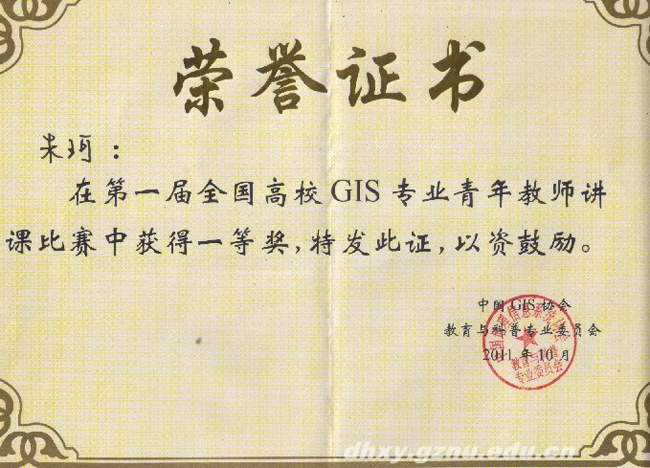 荣誉证书
朱珂：
在第一届全国高校GIS专业青年教师讲
课比赛中获得一等奖，特发此证，以资鼓励。
中国GIS协会
教育与科普专业委员会
2011年10月
教育与科普
专业委员会
dhxy.gznu.edu.cn